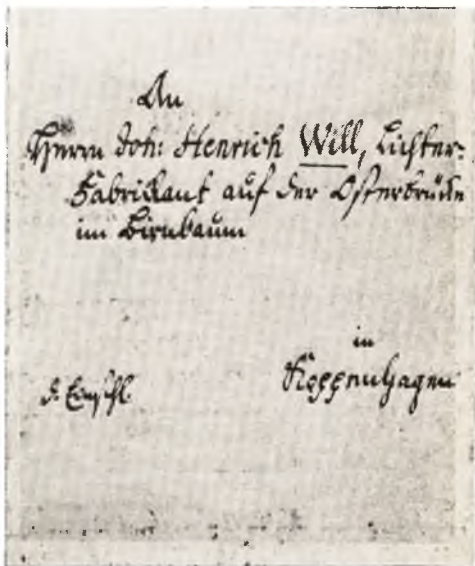 An
Herrn Joh: Henrich Will, Lichter-
Fabrickant auf der Osterbrücke
im Birnbaum
in
Koppenhagen